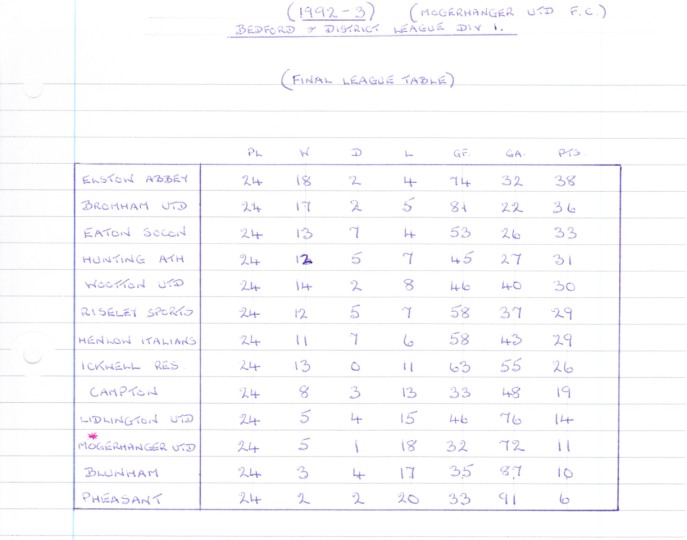 (1992-3) (MOGERHANGER UTD F.C.)
BEDFORD & DISTRICT LEAGUE DIV 1.
(FINAL LEAGUE TABLE)
PL W D L GF. GA. PTS
ELSTOW ABBEY 24 18 2 4 74 32 38
BROMHAM UTD 24 17 2 5 81 22 36
EATON SOCON 24 13 7 4 53 26 33
HUNTING ATH 24 12 5 7 45 27 31
WOOTTON UTD 24 14 2 8 46 40 30
RISELEY SPORTS 24 12 5 7 58 37 29
HENLOW ITALIANS 24 11 7 6 58 43 29
ICKWELL RES. 24 13 0 11 63 55 26
CAMPTON 24 8 3 13 33 48 19
LIDLINGTON UTD 24 5 4 15 46 76 14
*MOGERHANGER UTD 24 5 1 18 32 72 11
BLUNHAM 24 3 4 17 35 87 10
PHEASANT 24 2 2 20 33 91 6